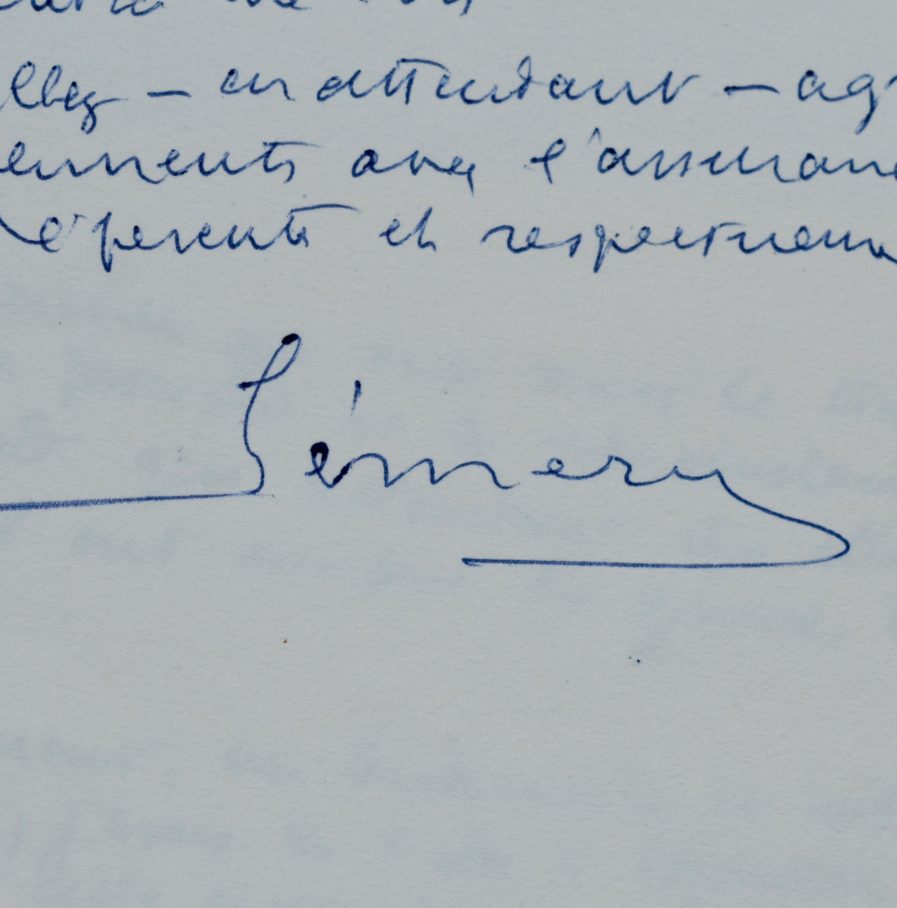 llez — en attendant — ag
ements avec l'assurance
déférents et respectueux
Sémery